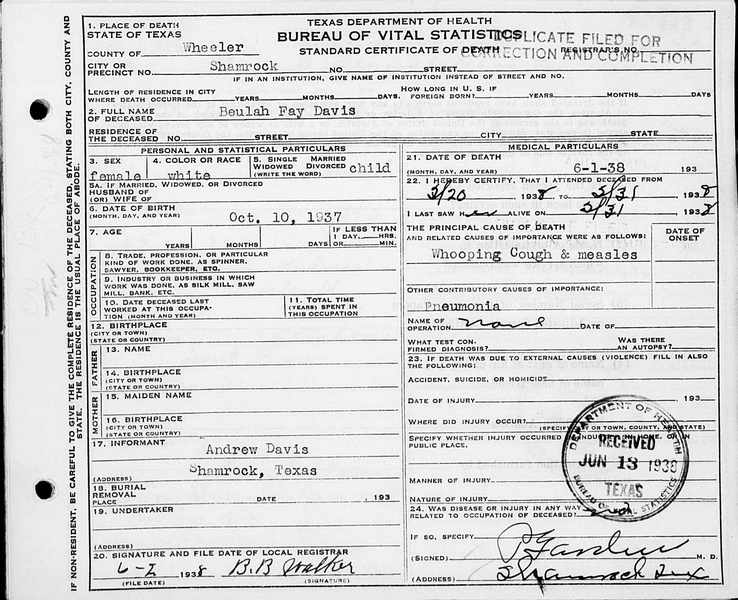 TEXAS DEPARTMENT OF HEALTH
BUREAU OF VITAL STATISTICS
STANDARD CERTIFICATE OF DEATH
DUPLICATE FILED FOR
CORRECTION AND COMPLETION
REGISTRAR'S NO.
1. PLACE OF DEATH
STATE OF TEXAS
COUNTY OF Wheeler
CITY OR
PRECINCT NO. Shamrock NO. STREET
IF IN AN INSTITUTION, GIVE NAME OF INSTITUTION INSTEAD OF STREET AND NO.
LENGTH OF RESIDENCE IN CITY
WHERE DEATH OCCURRED YEARS MONTHS DAYS.
HOW LONG IN U. S. IF
FOREIGN BORN? YEARS MONTHS DAYS
2. FULL NAME
OF DECEASED Beulah Fay Davis
RESIDENCE OF
THE DECEASED NO. STREET CITY STATE
PERSONAL AND STATISTICAL PARTICULARS
3. SEX
female
4. COLOR OR RACE
white
5. SINGLE MARRIED
WIDOWED DIVORCED
(WRITE THE WORD) child
5A. IF MARRIED, WIDOWED, OR DIVORCED
HUSBAND OF
(OR) WIFE OF
6. DATE OF BIRTH
(MONTH, DAY, AND YEAR) Oct, 10, 1937
7. AGE
YEARS MONTHS DAYS
IF LESS THAN
1 DAY, HRS.
OR MIN.
OCCUPATION
8. TRADE, PROFESSION, OR PARTICULAR
KIND OF WORK DONE, AS SPINNER,
SAWYER, BOOKKEEPER, ETC.
9. INDUSTRY OR BUSINESS IN WHICH
WORK WAS DONE, AS SILK MILL, SAW
MILL, BANK, ETC.
10. DATE DECEASED LAST
WORKED AT THIS OCCUPA-
TION (MONTH AND YEAR)
11. TOTAL TIME
(YEARS) SPENT IN
THIS OCCUPATION
12. BIRTHPLACE
(CITY OR TOWN)
(STATE OR COUNTRY)
FATHER
13. NAME
14. BIRTHPLACE
(CITY OR TOWN)
(STATE OR COUNTRY)
MOTHER
15. MAIDEN NAME
16. BIRTHPLACE
(CITY OR TOWN)
(STATE OR COUNTRY)
17. INFORMANT
Andrew Davis
(ADDRESS) Shamrock, Texas
18. BURIAL
REMOVAL
PLACE DATE , 193
19. UNDERTAKER
(ADDRESS)
20. SIGNATURE AND FILE DATE OF LOCAL REGISTRAR
6-2 1938 B.B Walker
(FILE DATE) (SIGNATURE)
MEDICAL PARTICULARS
21. DATE OF DEATH
(MONTH, DAY, AND YEAR) 6-1-38 193
22. I HEREBY CERTIFY, THAT I ATTENDED DECEASED FROM
5/20 1938 TO 5/31 1938
I LAST SAW HER ALIVE ON 5/31 1938
THE PRINCIPAL CAUSE OF DEATH
AND RELATED CAUSES OF IMPORTANCE WERE AS FOLLOWS:
DATE OF
ONSET
Whooping Cough & measles
OTHER CONTRIBUTORY CAUSES OF IMPORTANCE:
Pneumonia
NAME OF
OPERATION none DATE OF
WHAT TEST CON-
FIRMED DIAGNOSIS?
WAS THERE
AN AUTOPSY?
23. IF DEATH WAS DUE TO EXTERNAL CAUSES (VIOLENCE) FILL IN ALSO
THE FOLLOWING:
ACCIDENT, SUICIDE, OR HOMICIDE
DATE OF INJURY 193
WHERE DID INJURY OCCUR?
(SPECIFY CITY OR TOWN, COUNTY, AND STATE)
SPECIFY WHETHER INJURY OCCURRED IN INDUSTRY, IN HOME, OR IN
PUBLIC PLACE.
MANNER OF INJURY
NATURE OF INJURY
24. WAS DISEASE OR INJURY IN ANY WAY
RELATED TO OCCUPATION OF DECEASED?
IF SO, SPECIFY
(SIGNED) M. D.
(ADDRESS) Shamrock Tex
DEPARTMENT OF HEALTH
RECEIVED
JUN 13 1938
TEXAS
BUREAU OF VITAL STATISTICS
IF NON-RESIDENT, BE CAREFUL TO GIVE THE COMPLETE RESIDENCE OF THE DECEASED, STATING BOTH CITY, COUNTY AND
STATE. THE RESIDENCE IS THE USUAL PLACE OF ABODE.